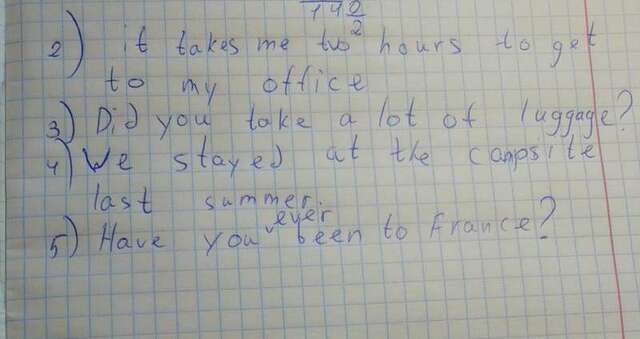 142
2) it takes me two 2 hours to get
to my office
3) Did you take a lot of luggage?
4) We stayed at the campsite
last summer.
5) Have you ever been to France?